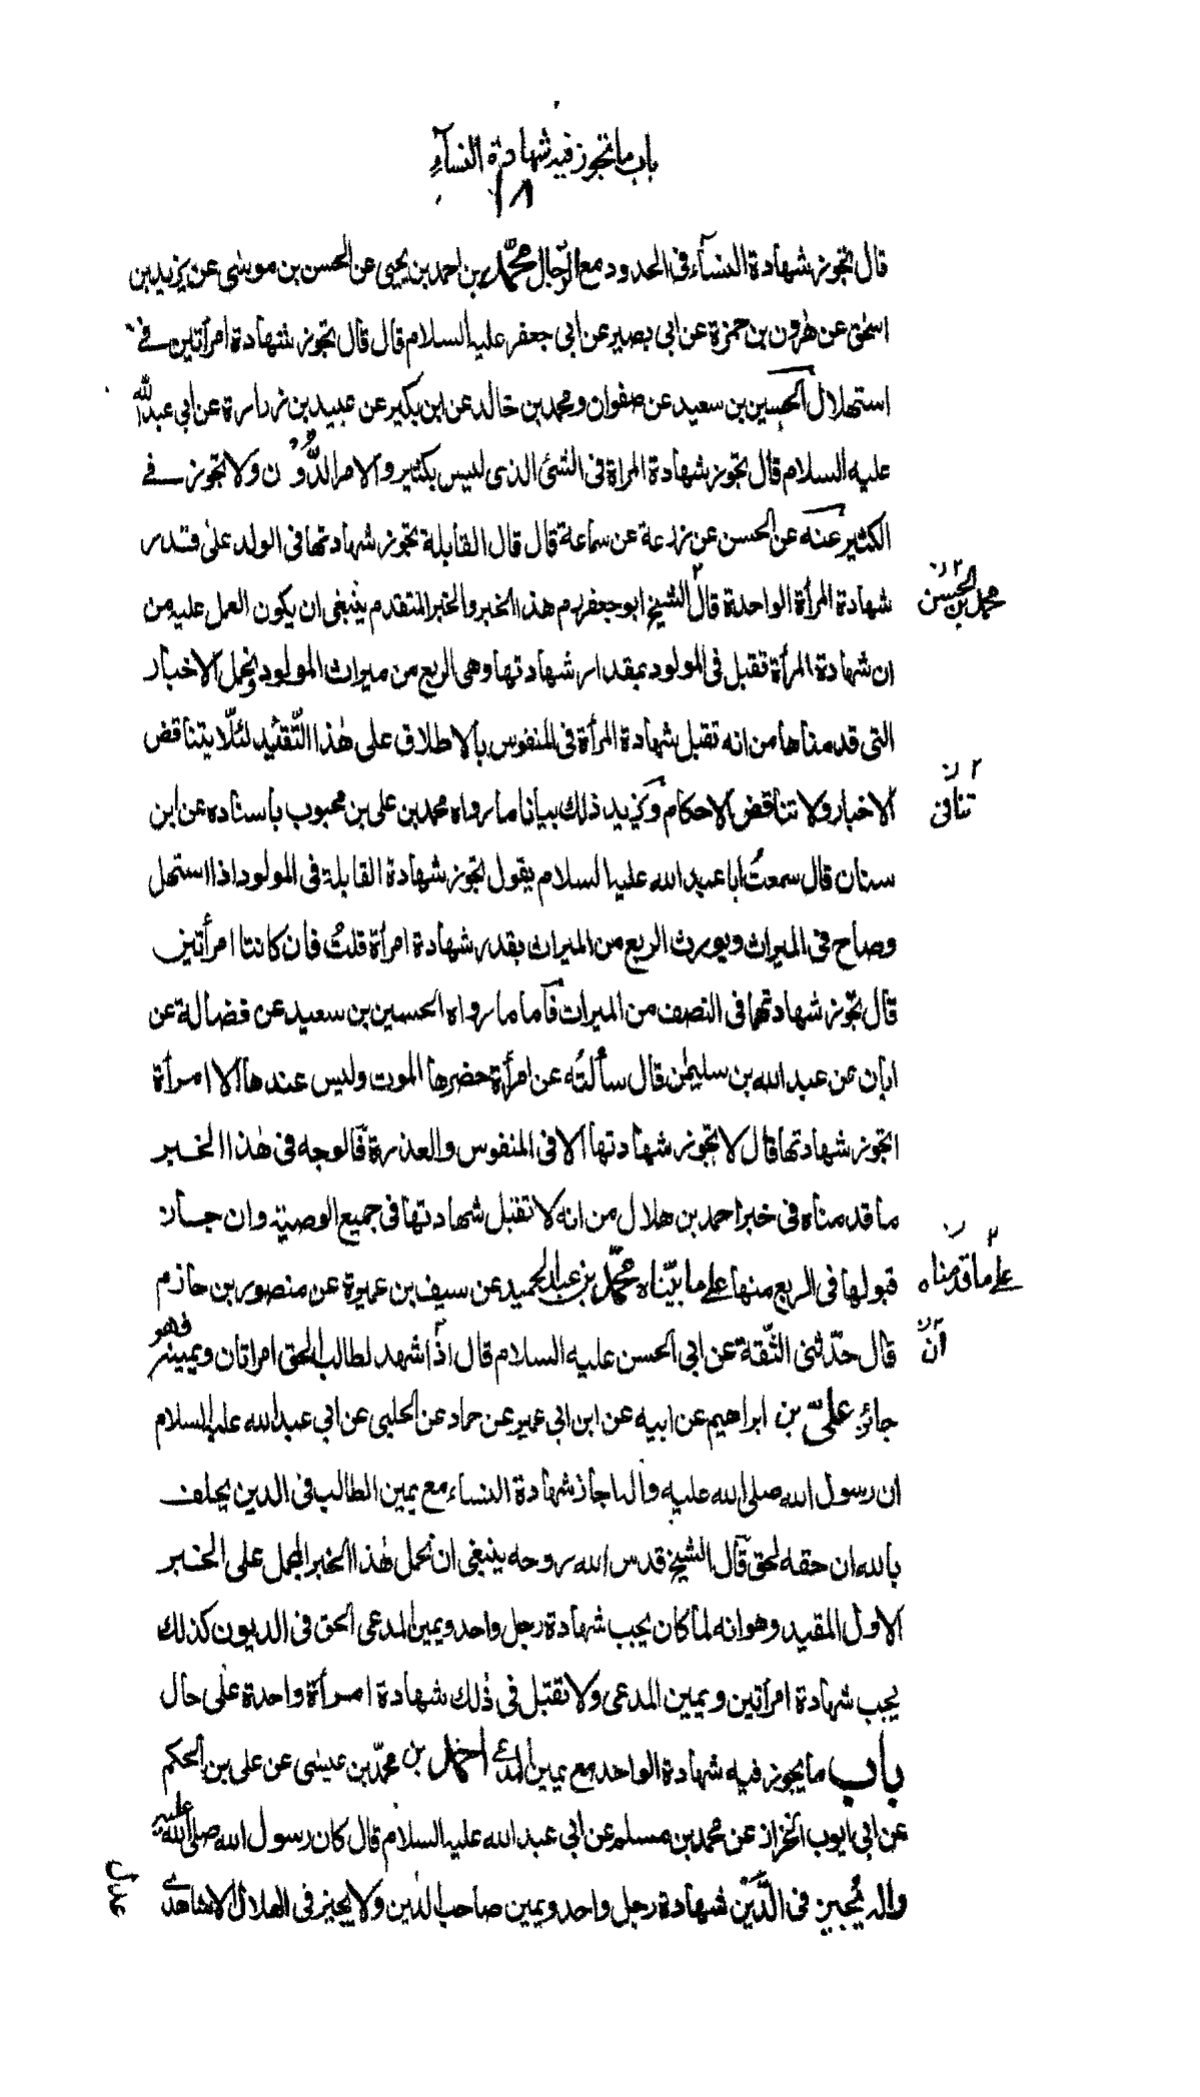 باب ما تجوز فيه شهادة النسآء
١٨
قال تجوز شهادة النسآء فى الحدود مع الرّجال محمّد بن احمد بن يحيى عن الحسن بن موسى عن يزيد بن
اسحٰق عن هٰرون بن حمزة عن ابى بصير عن ابى جعفر عليه السلام قال قال تجوز شهادة امرأتين فے
استهلال الحسين بن سعيد عن صفوان ومحمد بن خالد عن ابن بكير عن عبيد بن زرارة عن ابى عبدالله
عليه السلام قال تجوز شهادة المراة فى الشئ الذى ليس بكثير والامر الدُّوُن ولا تجوز فے
الكثير عنه عن الحسن عن زرعة عن سماعة قال قال القابلة تجوز شهادتها فى الولد على قدر
شهادة المرأة الواحدة قال الشيخ ابو جعفر ره هذا الخبر والخبر المتقدم ينبغى ان يكون العمل عليه من
محمد بن الحسن ٢ ن
ان شهادة المرأة تقبل فى المولود بمقدار شهادتها وهى الربع من ميراث المولود ونحمل الاخبار
التى قدمناها من انه تقبل شهادة المرأة فى المنفوس بالاطلاق على هٰذا التّقييد لئلّا يتناقض
الاخبار ولا تتناقض الاحكام ويزيد ذلك بيانا ما رواه محمد بن على بن محبوب باسناده عن ابن
تنافى ٢ ن
سنان قال سمعتُ ابا عبد الله عليه السلام يقول تجوز شهادة القابلة فى المولود اذا استهل
وصاح فى الميراث ويورث الربع من الميراث بقدر شهادة امرأة قلتُ فان كانتا امرأتين
قال تجوز شهادتهما فى النصف من الميراث فآما ما رواه الحسين بن سعيد عن فضالة عن
ابان عن عبد الله بن سليمٰن قال سألتُه عن امرأة حضرها الموت وليس عندها الا امرأة
اتجوز شهادتها قال لا تجوز شهادتها الا فى المنفوس والعذرة فالوجه فى هٰذا الخبر
ما قدمناه فى خبر احمد بن هلال من انه لا تقبل شهادتها فى جميع الوصية وان جاز
قبولها فى الربع منها على ما بيّناه محمّد بن عبد الحميد عن سيف بن عميرة عن منصور بن حازم
علىٰ ما قدمناه ٢ ن
قال حدّثنى الثّقة عن ابى الحسن عليه السلام قال اذا شهد لطالب الحق امراتان ويمينه فهو
ان ٢ ن
جائز علىّ بن ابراهيم عن ابيه عن ابن ابى عمير عن حماد عن الحلبى عن ابى عبدالله عليه السلام
ان رسول الله صلى الله عليه وآله اجاز شهادة النساء مع يمين الطالب فى الدين يحلف
بالله ان حقه لحق قآل الشيخ قدس الله روحه ينبغى ان نحمل هٰذا الخبر المجمل على الخبر
الاول المقيد وهو انه لما كان يجب شهادة رجل واحد ويمين المدعى الحق فى الديون كذلك
يجب شهادة امرأتين ويمين المدعى ولا تقبل فى ذٰلك شهادة امرأة واحدة على حال
باب ما يجوز فيه شهادة الواحد مع يمين المدعے احمد بن محمّد بن عيسٰى عن على بن الحكم
عن ابى ايوب الخزاز عن محمد بن مسلم عن ابى عبد الله عليه السلام قال كان رسول الله صلى الله عليه
واله يُجيز فى الدَّيْن شهادة رجل واحد ويمين صاحب الدين ولا يجيز فى الهلال الا شاهدى
عدل